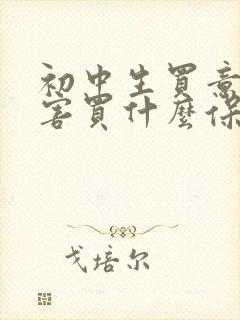 初中生買意
害買什麼保
戈培尔